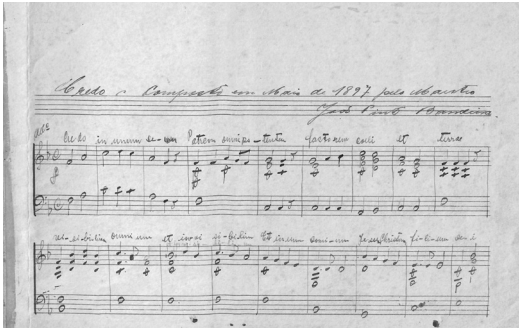 Credo Composto em Maio de 1897 pelo Maestro
José Pinto Bandeira.
Credo in unum Patrem omnipo-tentem factorem coeli et terrae
omnium et in-vi si-bilium Et in unum Jesum Christum fi-lium De-i